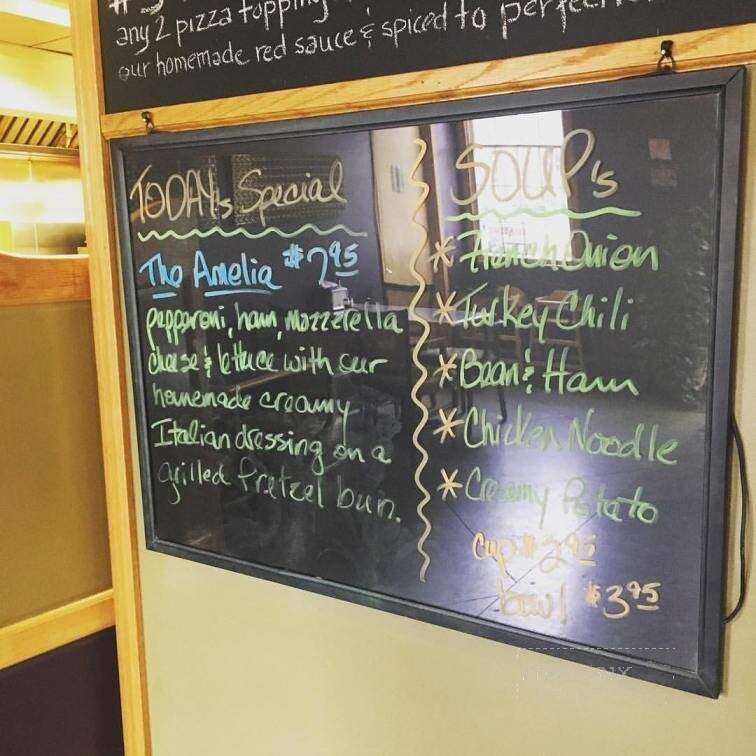 any 2 pizza topping
our homemade red sauce & spiced to
TODAY's Special
The Amelia $7.95
pepparoni, ham, mozzerella
cheese & lettuce with our
homemade creamy
Italian dressing on a
grilled Pretzel bun.
SOUP's
* French Onion
* Turkey Chili
* Bean & Ham
* Chicken Noodle
* Creamy Potato
cup $2.95
bowl $3.95